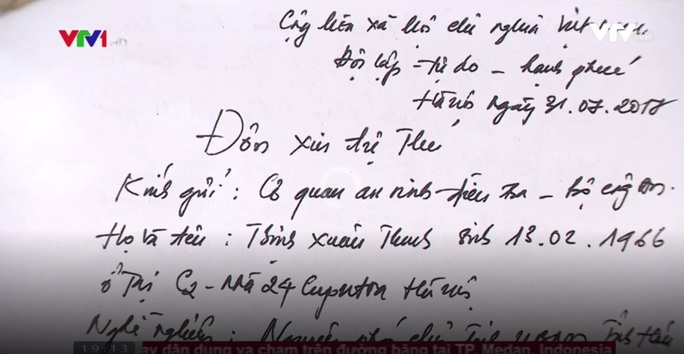 VTV1
Cộng hòa xã hội chủ nghĩa Việt Nam
Độc lập - tự do - hạnh phúc
Hà Nội ngày 31.07.2017
Đơn xin tự thú
Kính gửi: Cơ quan an ninh điều tra - Bộ công an.
Họ và tên: Trịnh Xuân Thanh sinh 13.02.1966
ở tại C2 - nhà 24 Hà Nội
Nghề nghiệp: Nguyên phó chủ tịch
19:13 ay dân dụng va chạm trên đường băng tại TP. Medan, Indonesia